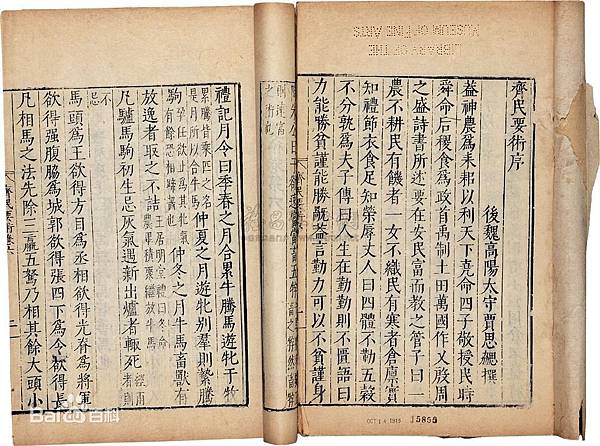 LIBRARY OF THE
MUSEUM OF FINE ARTS
齊民要術序
後魏高陽太守賈思勰撰
蓋神農爲耒耜以利天下堯命四子敬授民時
舜命后稷食爲政首禹制土田萬國作乂殷周
之盛詩書所述要在安民富而教之管子曰一
農不耕民有饑者一女不織民有寒者倉廩實
知禮節衣食足知榮辱丈人曰四體不勤五穀
不分孰爲夫子傳曰人生在勤勤則不匱語曰
力能勝貧謹能勝禍蓋言勤力可以不貧謹身
禮記月令曰季春之月合累牛騰馬遊牝于牧
累騰皆乘匹之名是月所以合牛馬仲夏之月遊牝別羣則縶騰
駒孕任欲止爲其牝氣有餘恐相蹄齧也仲冬之月牛馬畜獸有
放逸者取之不詰王居明堂禮曰冬命農畢積聚繼放牛馬
凡驢馬駒初生忌灰氣遇新出爐者輒死經雨者
不忌
馬頭爲王欲得方目爲丞相欲得光脊爲將軍
欲得强腹脇爲城郭欲得張四下爲令欲得長
凡相馬之法先除三羸五駑乃相其餘大頭小
OCT 14 1915
15855
Bai百科